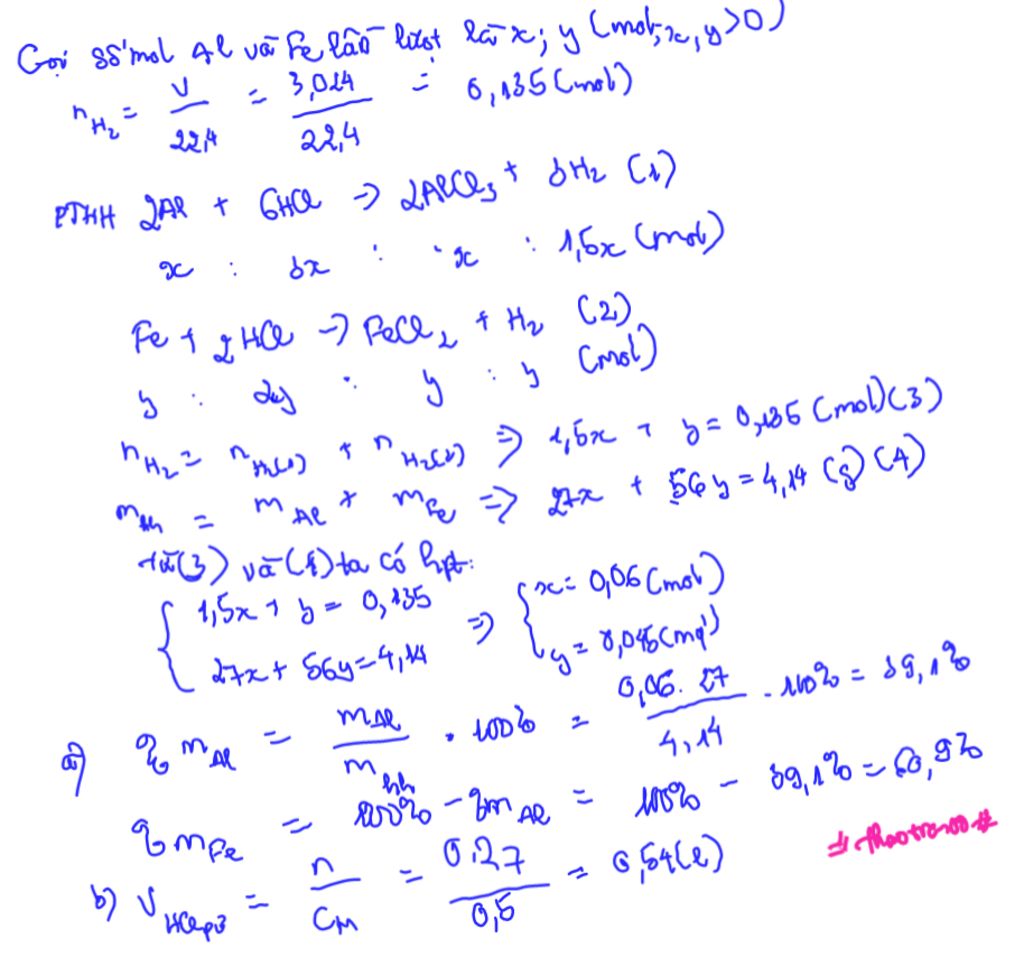 Gọi số mol Al và Fe lần lượt là x; y (mol; x, y > 0)
n_H₂ = V/22,4 = 3,024/22,4 = 0,135 (mol)
PTHH 2Al + 6HCl → 2AlCl₃ + 3H₂ (1)
x : 3x : x : 1,5x (mol)
Fe + 2HCl → FeCl₂ + H₂ (2)
y : 2y : y : y (mol)
n_H₂ = n_H₂(1) + n_H₂(2) ⇒ 1,5x + y = 0,135 (mol) (3)
m_hh = m_Al + m_Fe ⇒ 27x + 56y = 4,14 (g) (4)
từ (3) và (4) ta có hpt:
{ 1,5x + y = 0,135 ⇒ { x = 0,06 (mol)
27x + 56y = 4,14 y = 0,045 (mol)
a) % m_Al = m_Al/m_hh . 100% = 0,06. 27/4,14 . 100% = 39,1%
% m_Fe = 100% - % m_Al = 100% - 39,1% = 60,9%
b) V_HClpứ = n/C_M = 0.27/0,5 = 0,54 (l)